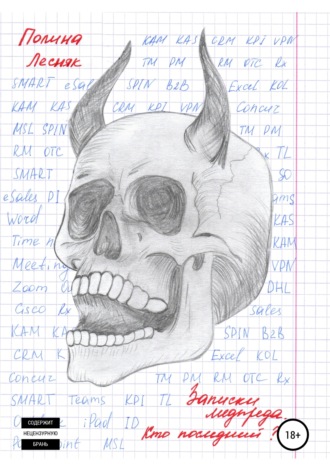 Полина KAM KAS CRM KPI VPN
Лесняк TM PM RM OTC Rx
SMART eSales SPIN B2B Excel KOL
KAM KAS CRM KPI VPN Concur
MSL SPIN TM PM
RM OTC Rx TL
SMART
eSales PI Teams
Word KAS
Time KAM
Meeting VPN
Zoom DHL
Cisco Rx Sales
KAM KA SPIN B2B
CRM K Excel KOL
Concur TM PM RM OTC Rx
SMART Teams KPI TL Записки
iPad ID медпреда.
MSL Кто последний?
СОДЕРЖИТ
НЕЦЕНЗУРНУЮ
БРАНЬ
18+